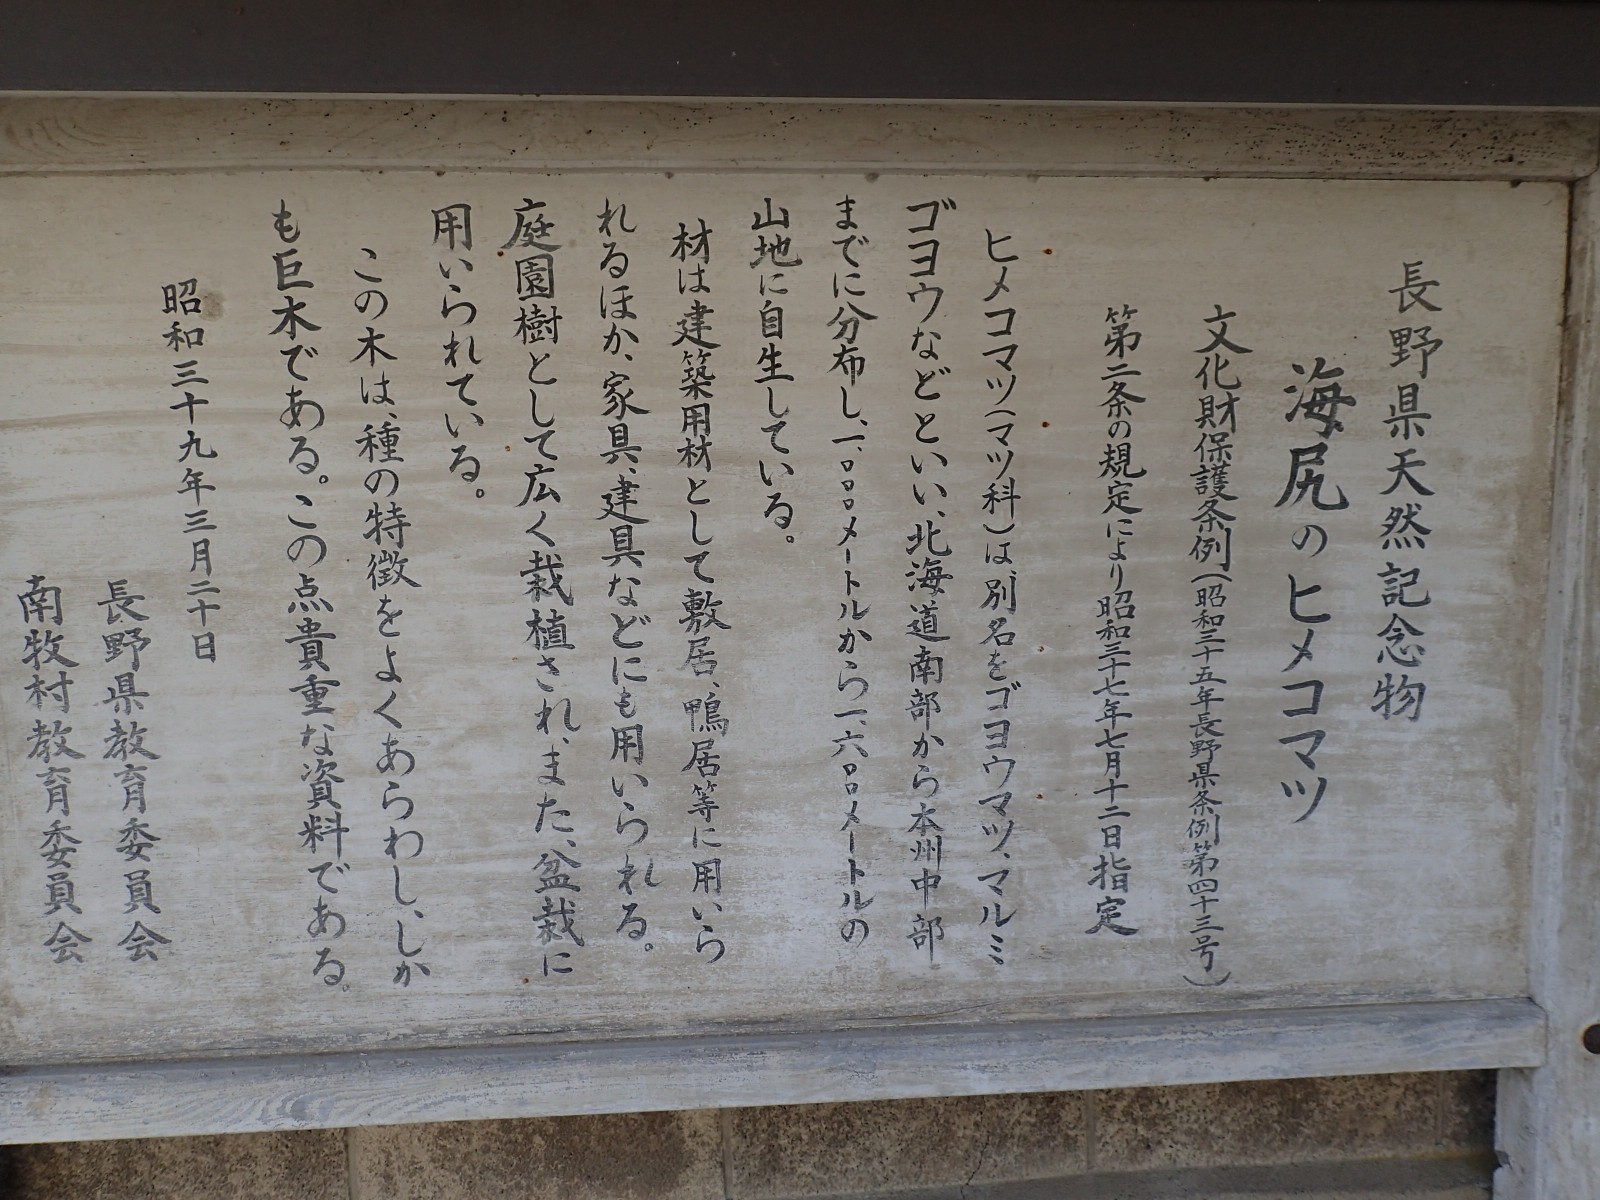 長野県天然記念物
海尻のヒメコマツ
文化財保護条例(昭和三十五年長野県条例第四十三号)
第二条の規定により昭和三十七年七月十二日指定
ヒメコマツ(マツ科)は、別名をゴヨウマツ、マルミ
ゴヨウなどといい、北海道南部から本州中部
までに分布し、一、〇〇〇メートルから一、六〇〇メートルの
山地に自生している。
材は建築用材として敷居、鴨居等に用いら
れるほか、家具、建具などにも用いられる。
庭園樹として広く栽植され、また、盆栽に
用いられている。
この木は、種の特徴をよくあらわし、しか
も巨木である。この点貴重な資料である。
昭和三十九年三月二十日
長野県教育委員会
南牧村教育委員会